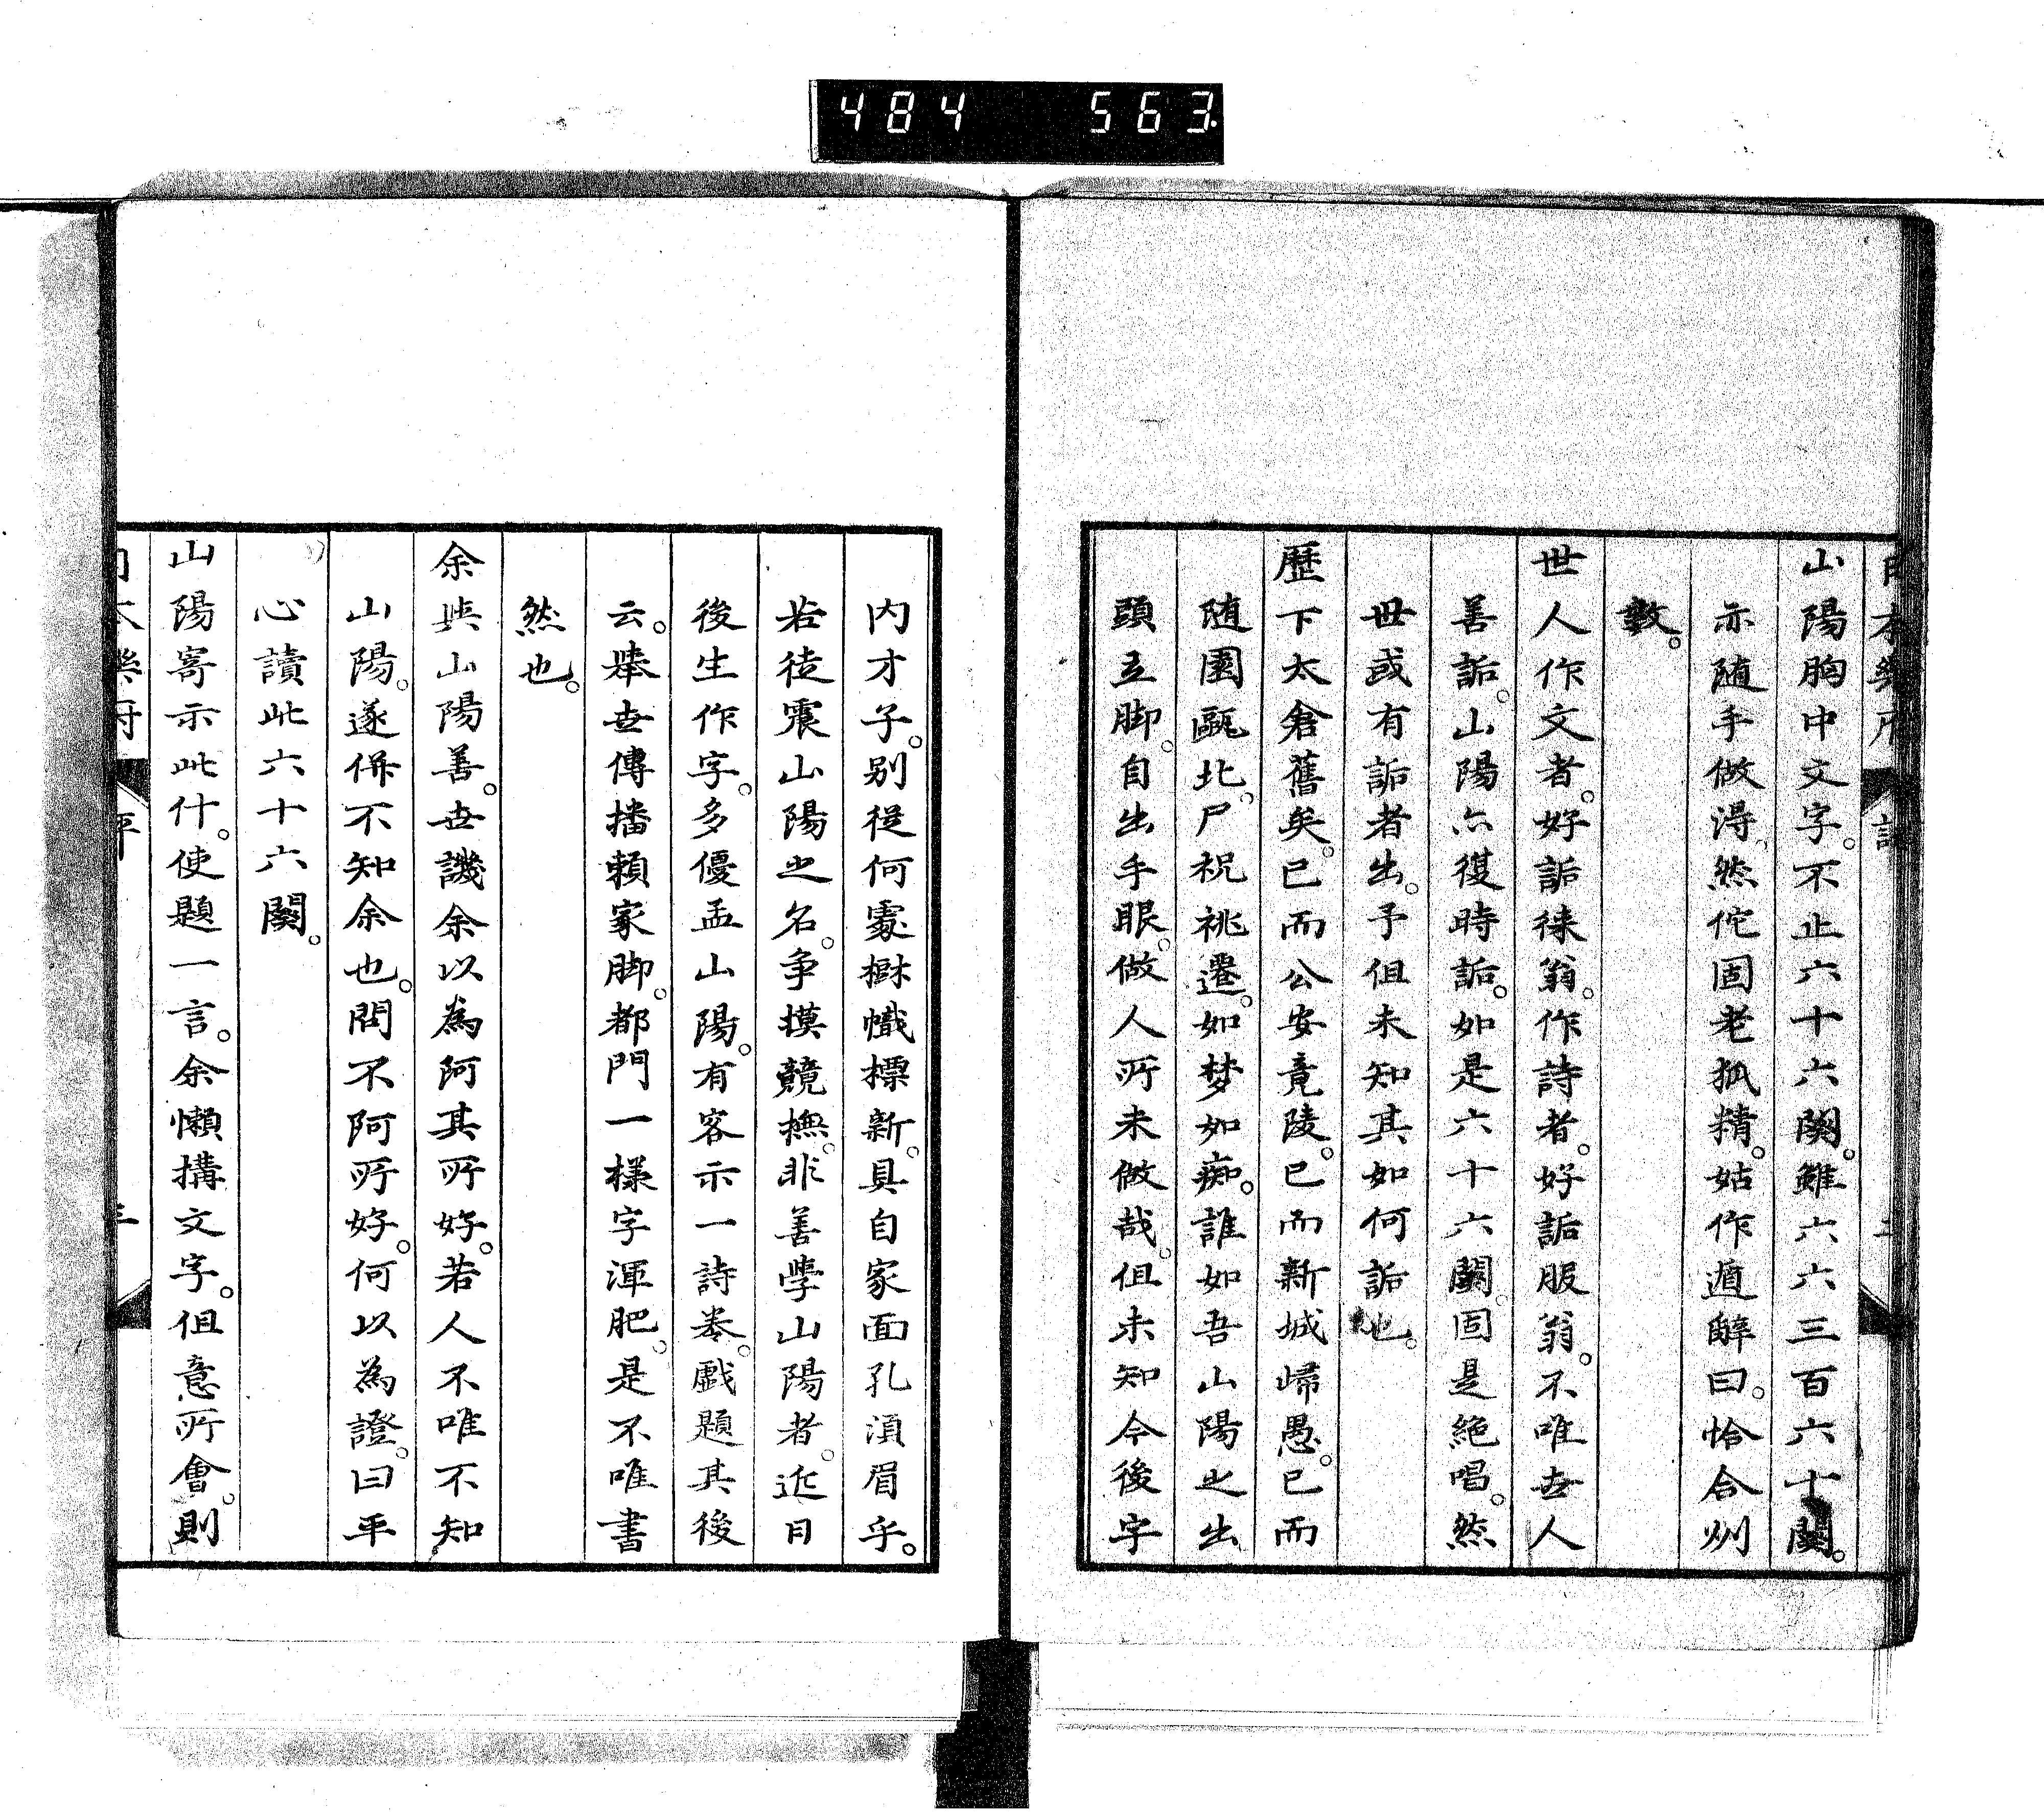 484 563
日本樂府 評 二
山陽胸中文字。不止六十六闋。雖六六三百六十闋。
亦随手做得。然佗固老狐精。姑作遁辭曰。恰合州
數。
世人作文者。好詬徠翁。作詩者。好詬服翁。不唯世人
善詬。山陽亦復時詬。如是六十六闋。固是絶唱。然
世或有詬者出。予但未知其如何詬也。
歴下太倉舊矣。已而公安竟陵。已而新城歸愚。已而
随園甌北。尸祝祧遷。如梦如痴。誰如吾山陽之出
頭立脚。自出手眼。做人所未做哉。但未知今後字
内才子。別從何處樹幟標新。具自家面孔湏眉乎。
若徒震山陽之名。争摸競橅。非善學山陽者。近日
後生作字。多優孟山陽。有客示一詩巻。戲題其後
云。舉世傳播頼家脚。都門一様字渾肥。是不唯書
然也。
余與山陽善。世譏余以為阿其所好。若人不唯不知
山陽。遂併不知余也。問不阿所好。何以為證。曰平
心讀此六十六闋。
山陽寄示此什。使題一言。余懶搆文字。但意所會。則
日本樂府 評 三